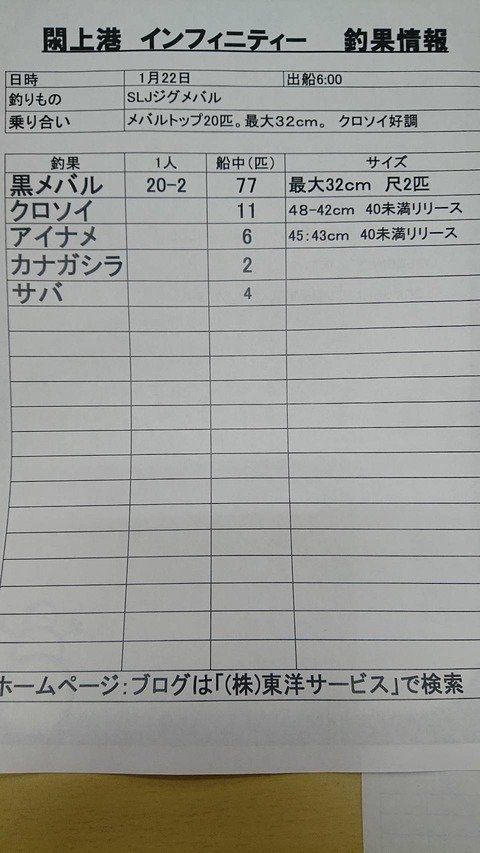 閖上港 インフィニティー 釣果情報
日時 1月22日 出船6:00
釣りもの SLJジグメバル
乗り合い メバルトップ20匹。最大32cm。 クロソイ好調
釣果 1人 船中(匹) サイズ
黒メバル 20-2 77 最大32cm 尺2匹
クロソイ 11 48-42cm 40未満リリース
アイナメ 6 45:43cm 40未満リリース
カナガシラ 2
サバ 4
ホームページ:ブログは「(株)東洋サービス」で検索